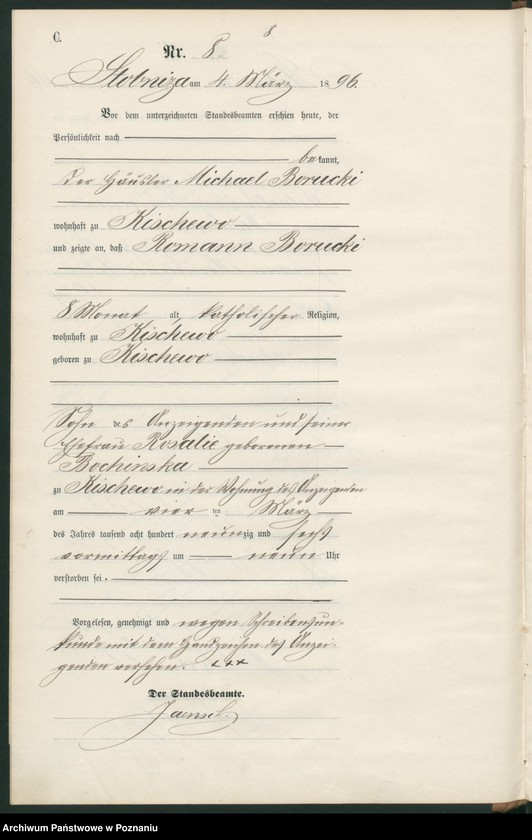 C.
8
Nr. 8.
Slobniza am 4. März 1896.
Vor dem unterzeichneten Standesbeamten erschien heute, der
Persönlichkeit nach
bekannt,
der Häusler Michael Borucki
wohnhaft zu Kischewo
und zeigte an, daß Romann Borucki
8 Monat alt, katholischer Religion,
wohnhaft zu Kischewo
geboren zu Kischewo
Sohn des Anzeigenden und seiner
Ehefrau Rosalie geborenen
Bochinska
zu Kischewo in der Wohnung des Anzeigenden
am vier ten März
des Jahres tausend acht hundert neunzig und sechs
vormittags um neun Uhr
verstorben sei.
Vorgelesen, genehmigt und wegen Schreibensun-
kunde mit dem Handzeichen des Anzei-
genden versehen. +++
Der Standesbeamte.
Jaensch.
Archiwum Państwowe w Poznaniu